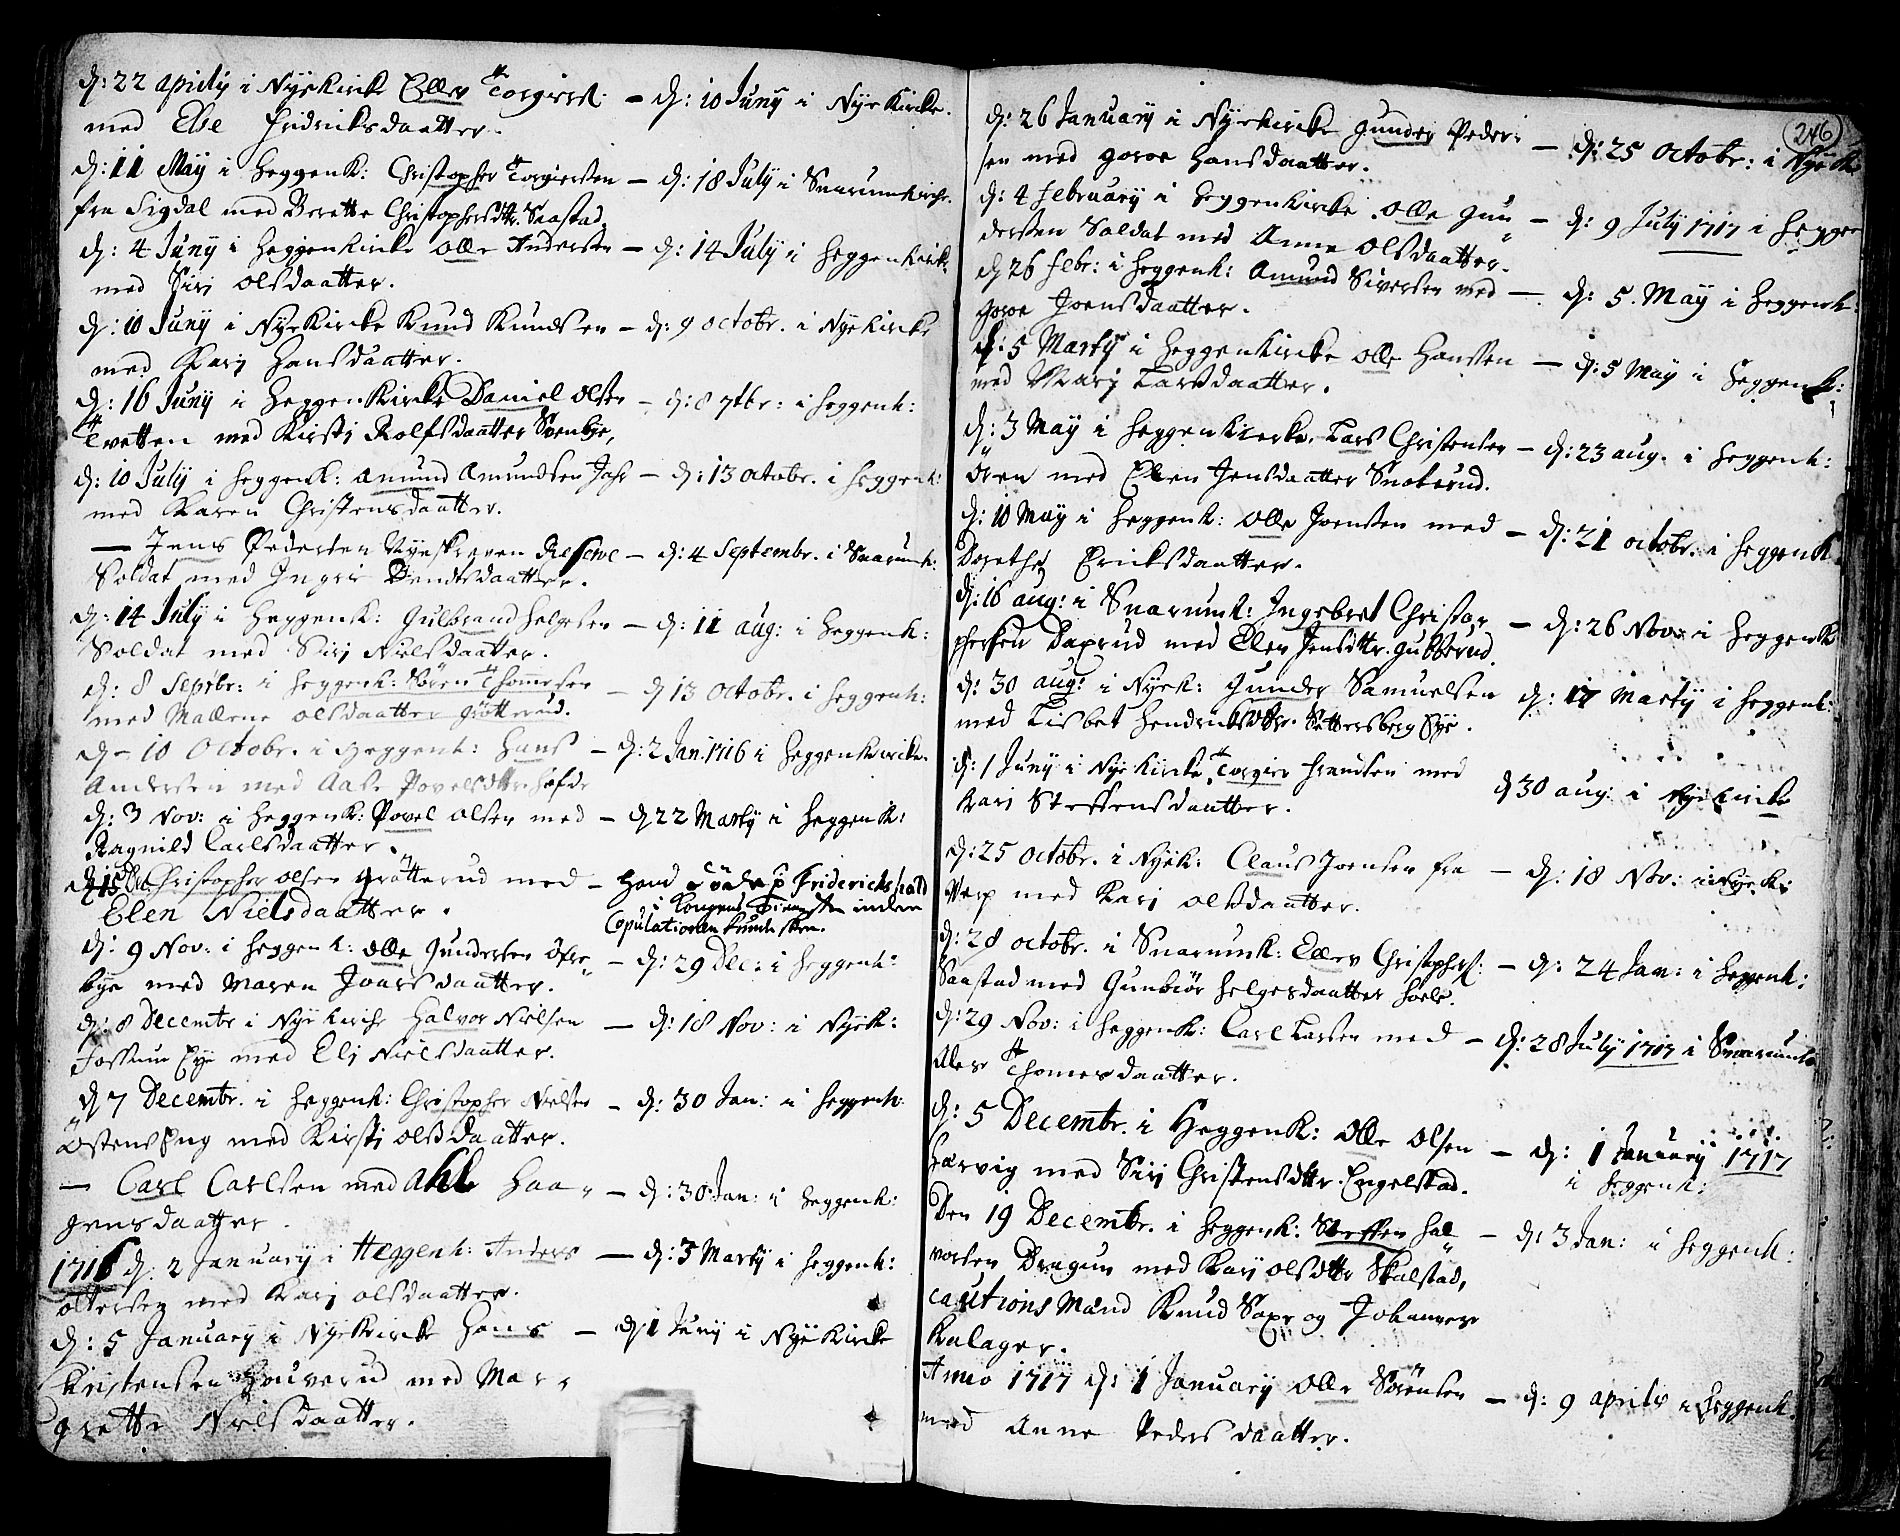 d: 22 aprily i Nyekircke Ellev Torgiers: — d: 10 Juny i Nyekircke.
med Else Fridricksdaatter.
d: 11 May i Heggenk: Christopher Torgiersen — d: 18 July i Snarumkirche.
fra Sigdal med Berette Christophersdtr. Saastad
d: 4 Juny i Heggenkircke Olle Andersen — d: 14 July i Heggenkirck:
med Siri Olsdaatter.
d: 10 Juny i Nyekircke Knud Knudsen — d: 9 octobr. i Nyekircke
med Kari Hansdaatter.
d: 16 Juny i Heggenkircke Daniel Olsen — d: 8 7tbr: i Heggenk:
Tvetten med Kirsti Rolfsdaatter
d: 10 July i Heggenk: Amund Amundsen Jahr — d: 13 octobr. i Heggenk:
med Karen Christensdaatter.
— Jens Pedersen Nyeskogen Reserve — d: 4 Septembr. i Snarumk:
Soldat med Ingri Bendtsdaatter.
d: 14 July i Heggenk: Gulbrand Helgesen — d: 11 aug: i Heggenk:
Soldat med Siri Nielsdaatter.
d: 8 Septbr: i Heggenk: Sören Thomesen — d 13 octobr. i Heggenk:
med Mallene olsdaatter Grötterud.
d — 10 Octobr. i Heggenk: Hans — d: 2 Jan. 1716 i Heggenkircke.
Andersen med Aase Povelsdtr. Hofde
d: 3 Nov: i Heggenk: Povel Olsen med — d 22 Marty i Heggenk:
Ragnild Carlsdaatter.
d 15 Dec Christopher olsen Gråtterud med — Hand döde p Friderickshald
Elen Nielsdaatter. i Kongens Tieneste inden
Copulationen kunde skee.
d: 9 Nov: i Heggenk: Olle Gundersen Öfre — d: 29 Dec: i Heggenk:
bye med Maren Joarsdaatter.
d: 8 Decembr i Nyekirche Halvor Nielsen — d: 18 Nov: i Nyek:
Fossum Eye med Eli Nielsdaatter.
d 7 Decembr. i Heggenk: Christopher Nielsen — d: 30 Jan: i Heggenk:
ÖstensEng med Kirsti olsdaatter.
— Carl Carlsen med Ahle Haa- — d: 30 Jan: i Heggenk:
gensdaatter.
1716 d: 2 January i Heggenk: Anders — d: 3 Marty i Heggenk:
Ottersen med Kari olsdaatter.
d: 5 January i Nyekircke Hans — d 1 Juny i Nyekircke
Kristensen med Mar-
grette Nielsdaatter.
246
d: 26 January i Nyekircke Gunder Peder- — d: 25 Octobr: i Nyek
sen med Goroe Hansdaatter.
d: 4 February i Heggenkircke Olle Gun- — d: 9 July 1717 i Heggen
dersen Soldat med Anne Olsdaatter.
d 26 Febr: i Heggenk: Amund Siversen med — d: 5. May i Heggenk:
Goroe Joensdaatter.
d: 5 Marty i Heggenkircke Olle Hansen — d: 5 May i Heggenk:
med Mari Larsdaatter.
d: 3 May i Heggenkircke Lars Christensen — d: 23 aug. i Heggenk:
Ören med Elen Jensdaatter Snakerud.
d: 10 May i Heggenk: Olle Joensen med — d: 21 octobr. i Heggenk
Dorethe Ericksdaatter.
d: 16 aug: i Snarumk: Ingebret Christo- — d: 26 Nov: i Heggenk
phersen Daprud med Elen Jensdtr. Gubberud.
d: 30 aug: i Nyek: Gunder Samuelsen d: 17 Marty i Heggenk:
med Lisbet Hendricksdtr. Settersberg Eye.
d: 1 Juny i Nyekircke Torgier Frandsen med d 30 aug: i Nyekircke
Kari Steffensdaatter.
d: 25 octobr. i Nyek: Claus Joensen fra — d: 18 Nov: i Nyek:
Werp med Kari olsdaatter.
d: 28 octobr. i Snarumk: Ellev Christophers: — d: 24 Jan: i Heggenk:
Saastad med Gunbiör Helgesdaatter Hoele.
d: 29 Nov: i Heggenk: Carl Larsen med — d: 28 July 1717 i Snarumk
Aler Thomesdaatter.
d: 5 Decembr. i Heggenk: Olle Olsen — d: 1 January 1717
Harvig med Siri Christensdtr. Engelstad. i Heggenk:
Den 19 Decembr. i Heggenk: Steffen Hal- — d: 3 Jan: i Heggenk:
vorsen Dragun med Kari olsdtr Skalstad,
cautions Mænd Knud Saxe og Johannes
Kalager.
Anno 1717 d: 1 January Olle Sörensen — d: 9 aprilis i Heggenk.
med Anne Pedersdaatter.